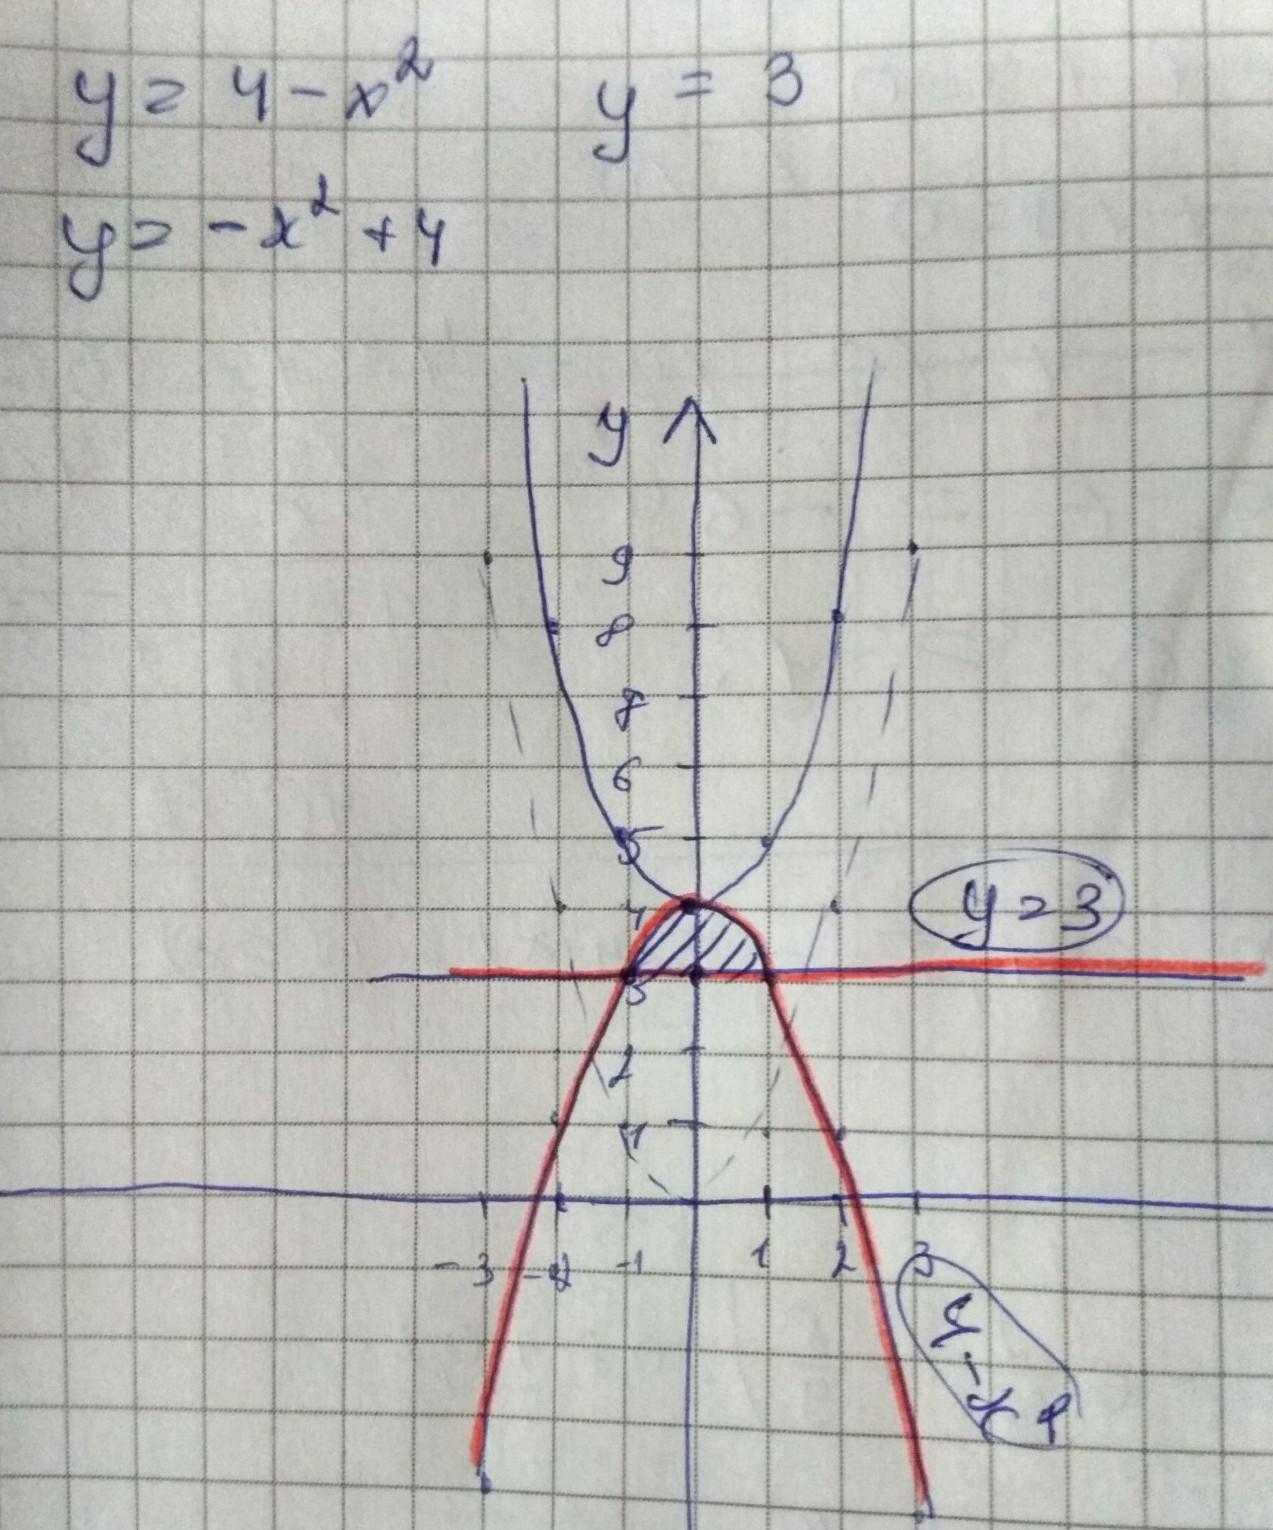 y = 4 - x² y = 3
y = -x² + 4
y
9
8
7
6
5
4
y = 3
3
2
1
-3 -2 -1 1 2 3
4 - x²